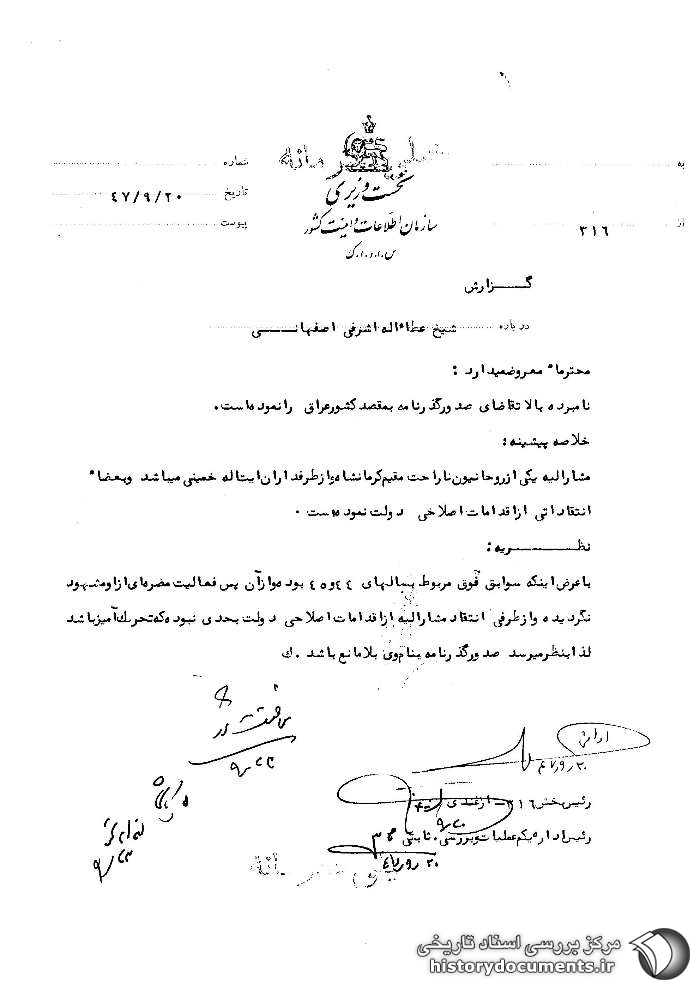 به
شماره
نخست وزیری
تاریخ ٤٧/٩/٢٠
سازمان اطلاعات و امنیت کشور
از ٣١٦
پیوست
س.ا.و.ا.ک
گـــزارش
درباره شیخ عطاءاله اشرفی اصفهانـــی
محترما" معروضمیدارد :
نامبرده بالا تقاضای صدور گذرنامه بمقصد کشور عراق را نموده است.
خلاصه پیشینه :
مشارالیه یکی از روحانیون ناراحت مقیم کرمانشاه و از طرفداران ایت اله خمینی میباشد و بعضا"
انتقاداتی از اقدامات اصلاحی دولت نموده است .
نظــــریه :
با عرض اینکه سوابق فوق مربوط بسالهای ٤٤ و ٤٥ بوده و از آن پس فعالیت مضره ای از او مشهود
نگردیده و از طرفی انتقاد مشارالیه از اقدامات اصلاحی دولت بحدی نبوده که تحریک آمیز باشد
لذا بنظر میرسد صدور گذرنامه بنام وی بلامانع باشد . ك
رئیس بخش ٣١٦ - ازغندی
رئیس اداره یکم عملیات و بررسی . ثابتی
مرکز بررسی اسناد تاریخی
historydocuments.ir